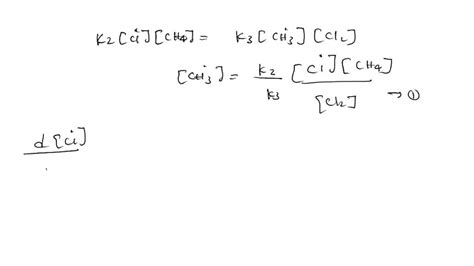 k₂[Cl̇][CH₄] = k₃[ĊH₃][Cl₂]
[ĊH₃] = k₂/k₃ [Cl̇][CH₄]/[Cl₂] → ①
d[Cl̇]